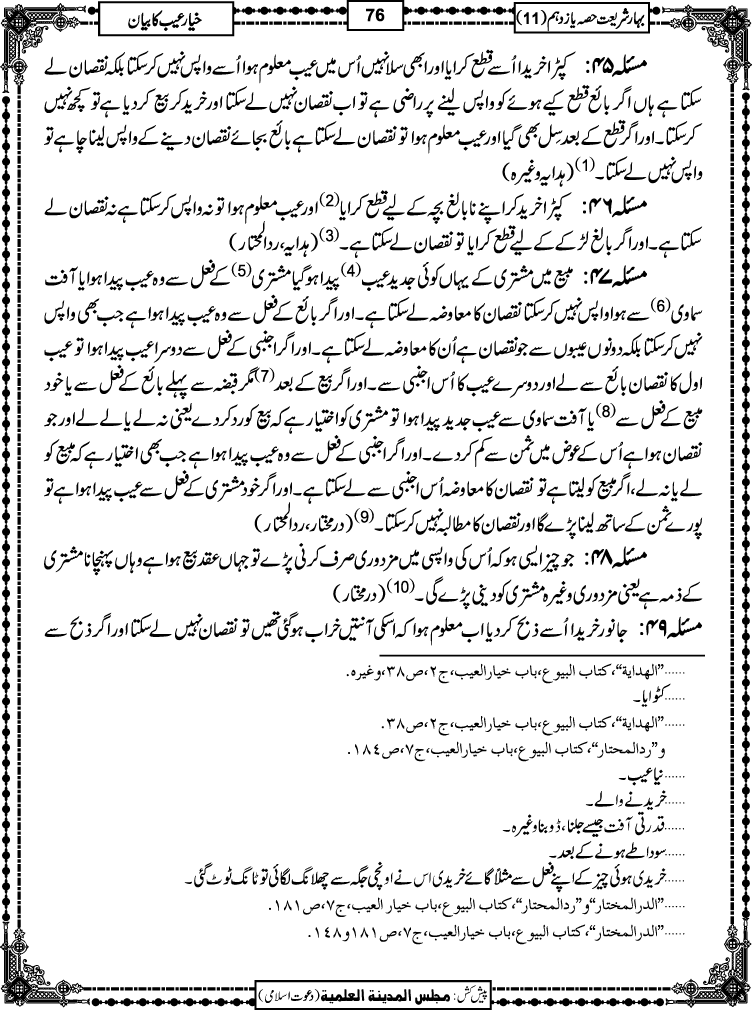 بہارِ شریعت حصہ یازدہم (11)
76
خیارِ عیب کا بیان
مسئلہ ۴۵: کپڑا خریدا اُسے قطع کرایا اور ابھی سلا نہیں اُس میں عیب معلوم ہوا اُسے واپس نہیں کرسکتا بلکہ نقصان لے
سکتا ہے ہاں اگر بائع قطع کیے ہوئے کو واپس لینے پر راضی ہے تو اب نقصان نہیں لے سکتا اور خرید کر بیع کر دیا ہے تو کچھ نہیں
کرسکتا۔ اور اگر قطع کے بعد سِل بھی گیا اور عیب معلوم ہوا تو نقصان لے سکتا ہے بائع بجائے نقصان دینے کے واپس لینا چاہے تو
واپس نہیں لے سکتا۔(1) (ہدایہ وغیرہ)
مسئلہ ۴۶: کپڑا خرید کر اپنے نابالغ بچہ کے لیے قطع کرایا(2) اور عیب معلوم ہوا تو نہ واپس کرسکتا ہے نہ نقصان لے
سکتا ہے۔ اور اگر بالغ لڑکے کے لیے قطع کرایا تو نقصان لے سکتا ہے۔(3) (ہدایہ، ردالمحتار)
مسئلہ ۴۷: مبیع میں مشتری کے یہاں کوئی جدید عیب(4) پیدا ہوگیا مشتری(5) کے فعل سے وہ عیب پیدا ہوا یا آفت
سماوی(6) سے ہوا واپس نہیں کرسکتا نقصان کا معاوضہ لے سکتا ہے۔ اور اگر بائع کے فعل سے وہ عیب پیدا ہوا ہے جب بھی واپس
نہیں کرسکتا بلکہ دونوں عیبوں سے جو نقصان ہے اُن کا معاوضہ لے سکتا ہے۔ اور اگر اجنبی کے فعل سے دوسرا عیب پیدا ہوا تو عیب
اول کا نقصان بائع سے لے اور دوسرے عیب کا اُس اجنبی سے۔ اور اگر بیع کے بعد(7) مگر قبضہ سے پہلے بائع کے فعل سے یا خود
مبیع کے فعل سے(8) یا آفت سماوی سے عیب جدید پیدا ہوا تو مشتری کو اختیار ہے کہ بیع کو رد کردے یعنی نہ لے یا لے لے اور جو
نقصان ہوا ہے اُس کے عوض میں ثمن سے کم کردے۔ اور اگر اجنبی کے فعل سے وہ عیب پیدا ہوا ہے جب بھی اختیار ہے کہ مبیع کو
لے یا نہ لے، اگر مبیع کو لیتا ہے تو نقصان کا معاوضہ اُس اجنبی سے لے سکتا ہے۔ اور اگر خود مشتری کے فعل سے عیب پیدا ہوا ہے تو
پورے ثمن کے ساتھ لینا پڑے گا اور نقصان کا مطالبہ نہیں کرسکتا۔(9) (درمختار، ردالمحتار)
مسئلہ ۴۸: جو چیز ایسی ہو کہ اُس کی واپسی میں مزدوری صرف کرنی پڑے تو جہاں عقد بیع ہوا ہے وہاں پہنچانا مشتری
کے ذمہ ہے یعنی مزدوری وغیرہ مشتری کو دینی پڑے گی۔(10) (درمختار)
مسئلہ ۴۹: جانور خریدا اُسے ذبح کردیا اب معلوم ہوا کہ اسکی آنتیں خراب ہوگئی تھیں تو نقصان نہیں لے سکتا اور اگر ذبح سے
......”الھدایة“، کتاب البیوع، باب خیارالعیب، ج٢، ص٣٨، وغیرہ.
......کٹوایا۔
......”الھدایة“، کتاب البیوع، باب خیارالعیب، ج٢، ص٣٨.
و”ردالمحتار“، کتاب البیوع، باب خیارالعیب، ج٧، ص١٨٤.
......نیا عیب۔
......خریدنے والے۔
......قدرتی آفت جیسے جلنا، ڈوبنا وغیرہ۔
......سودا طے ہونے کے بعد۔
......خریدی ہوئی چیز کے اپنے فعل سے مثلاً گائے خریدی اس نے اونچی جگہ سے چھلانگ لگائی تو ٹانگ ٹوٹ گئی۔
......”الدرالمختار“ و”ردالمحتار“، کتاب البیوع، باب خیار العیب، ج٧، ص١٨١.
......”الدرالمختار“، کتاب البیوع، باب خیارالعیب، ج٧، ص١٨١ و١٤٨.
پیش کش: مجلس المدینة العلمیة (دعوت اسلامی)